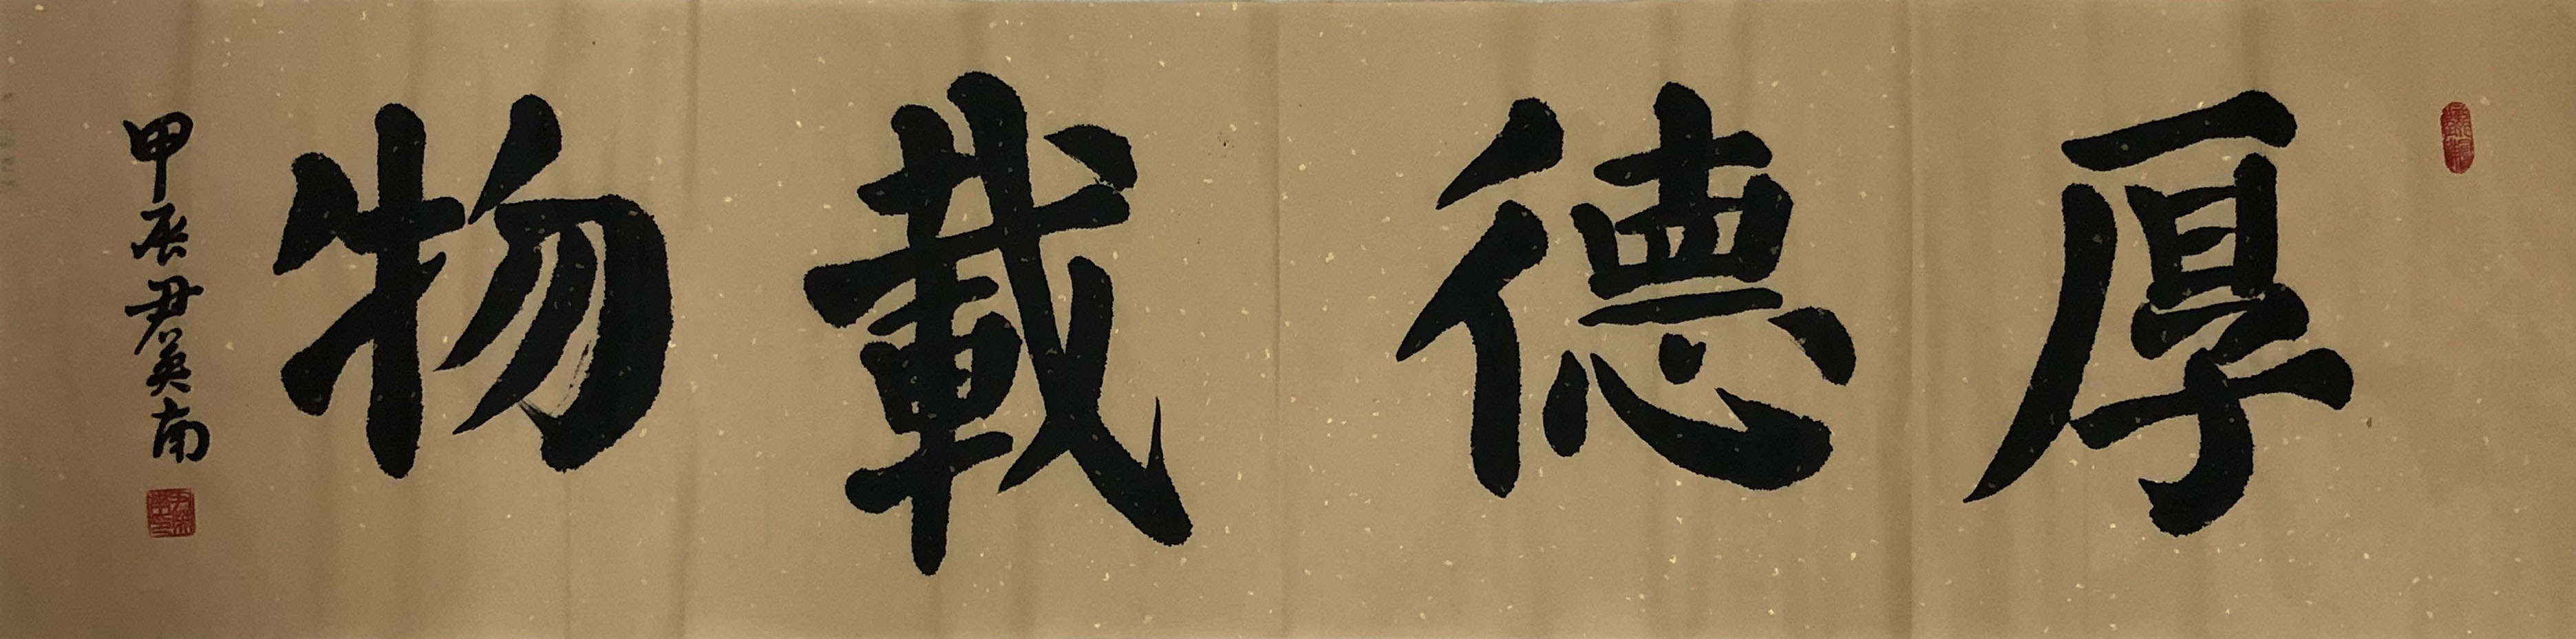 厚德載物
甲辰尹英南